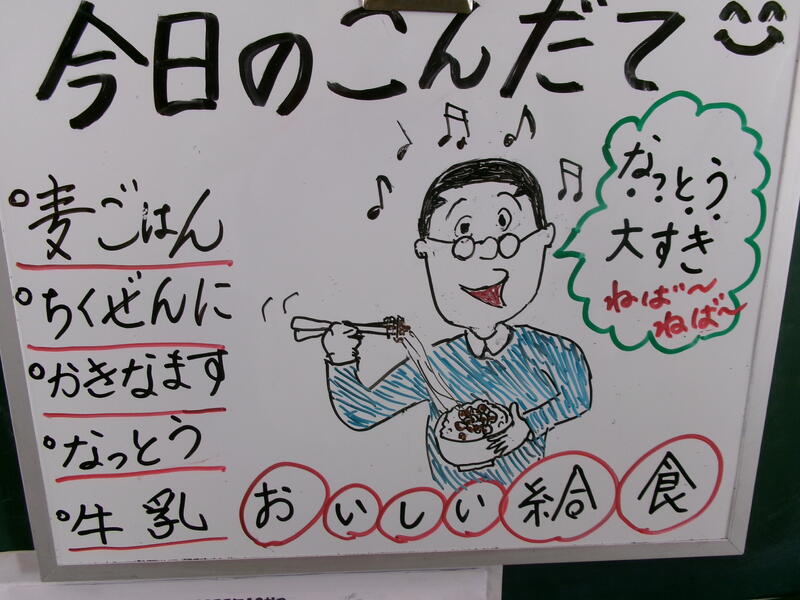 今日のこんだて
麦ごはん
ちくぜんに
かきなます
なっとう
牛乳
なっとう
大すき
ねば〜
ねば〜
おいしい給食